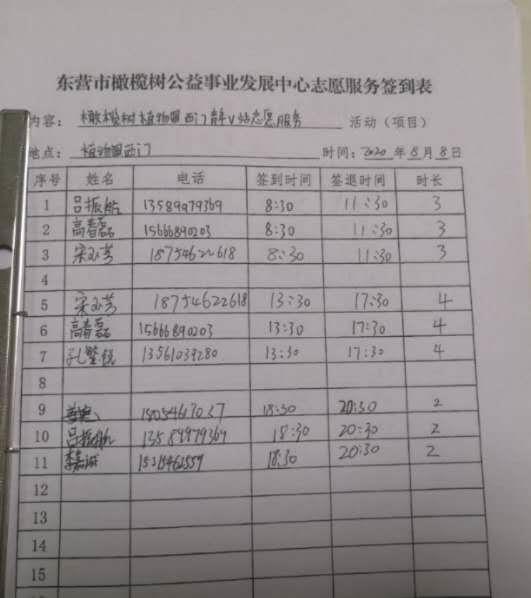 东营市橄榄树公益事业发展中心志愿服务签到表
内容： 橄榄树植物园西门青年V站志愿服务 活动（项目）
地点： 植物园西门 时间：2020 年 8 月 8 日
序号 姓名 电话 签到时间 签退时间 时长
1 吕振航 13589979369 8:30 11:30 3
2 高春磊 15666890203 8:30 11:30 3
3 宋秀芳 18754622618 8:30 11:30 3
4
5 宋秀芳 18754622618 13:30 17:30 4
6 高春磊 15666890203 13:30 17:30 4
7 孔繁锐 13561039280 13:30 17:30 4
8
9 18:30 20:30 2
10 吕振航 13589979369 18:30 20:30 2
11 18:30 20:30 2
12
13
14
15